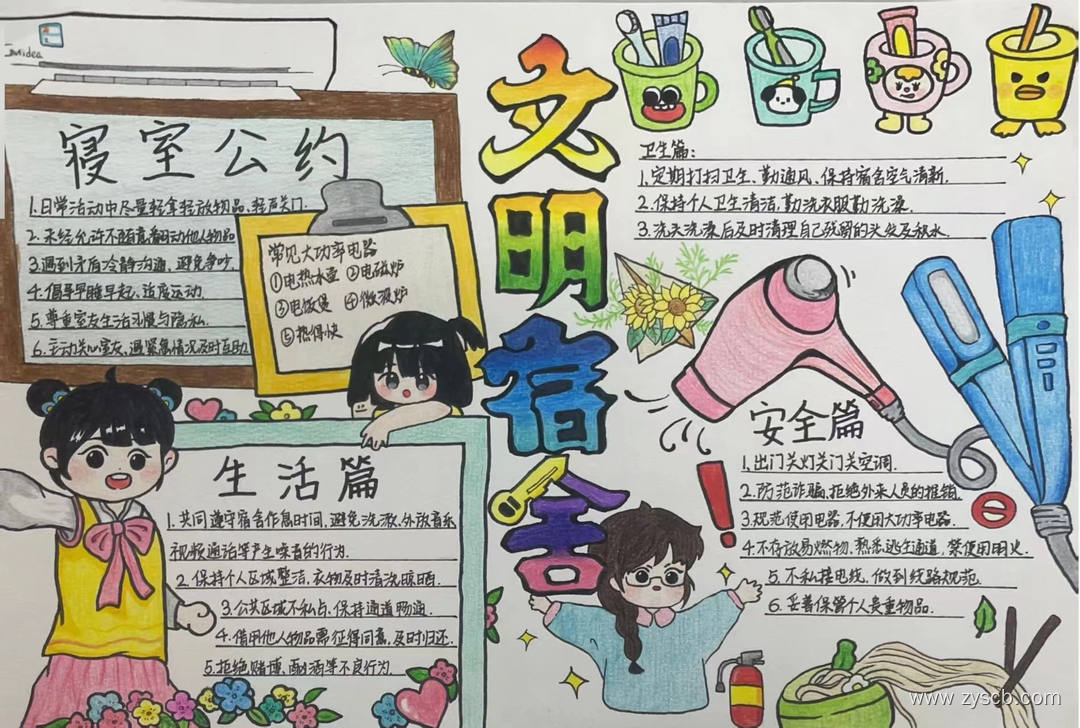 寝室公约
1.日常活动中尽量轻拿轻放物品、轻声关门.
2.未经允许不随意翻动他人物品
3.遇到矛盾冷静沟通，避免争吵.
4.倡导早睡早起、适度运动.
5.尊重室友生活习惯与隐私.
6.主动关心室友，遇紧急情况及时互助
常见大功率电器
①电热水壶 ②电磁炉
③电饭煲 ④微波炉
⑤热得快
文明宿舍
卫生篇：
1.定期打扫卫生、勤通风、保持宿舍空气清新.
2.保持个人卫生清洁，勤洗衣服勤洗澡.
3.洗头洗澡后及时清理自己残留的头发及积水.
生活篇
1.共同遵守宿舍作息时间，避免洗漱、外放音乐
视频通话等产生噪音的行为.
2.保持个人区域整洁，衣物及时清洗晾晒.
3.公共区域不私占、保持通道畅通.
4.借用他人物品需征得同意，及时归还.
5.拒绝赌博、酗酒等不良行为.
安全篇
1.出门关灯关门关空调.
2.防范诈骗，拒绝外来人员的推销.
3.规范使用电器，不使用大功率电器.
4.不存放易燃物，熟悉逃生通道，禁使用明火.
5.不私接电线，做到线路规范.
6.妥善保管个人贵重物品.
www.zyscb.com